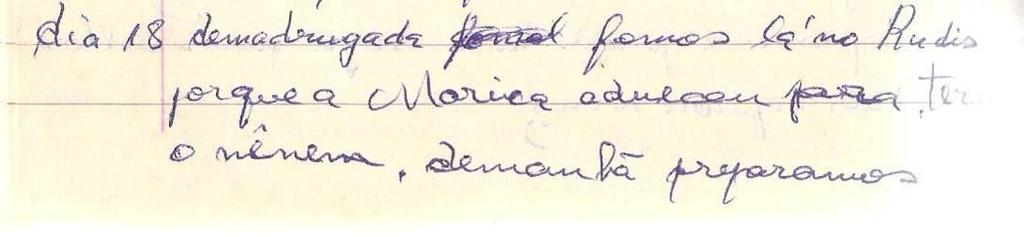 dia 18 demadrugada fomos lá no Rudis
porque a Marica aduecou para ter
o nênem, demanhã preparamos